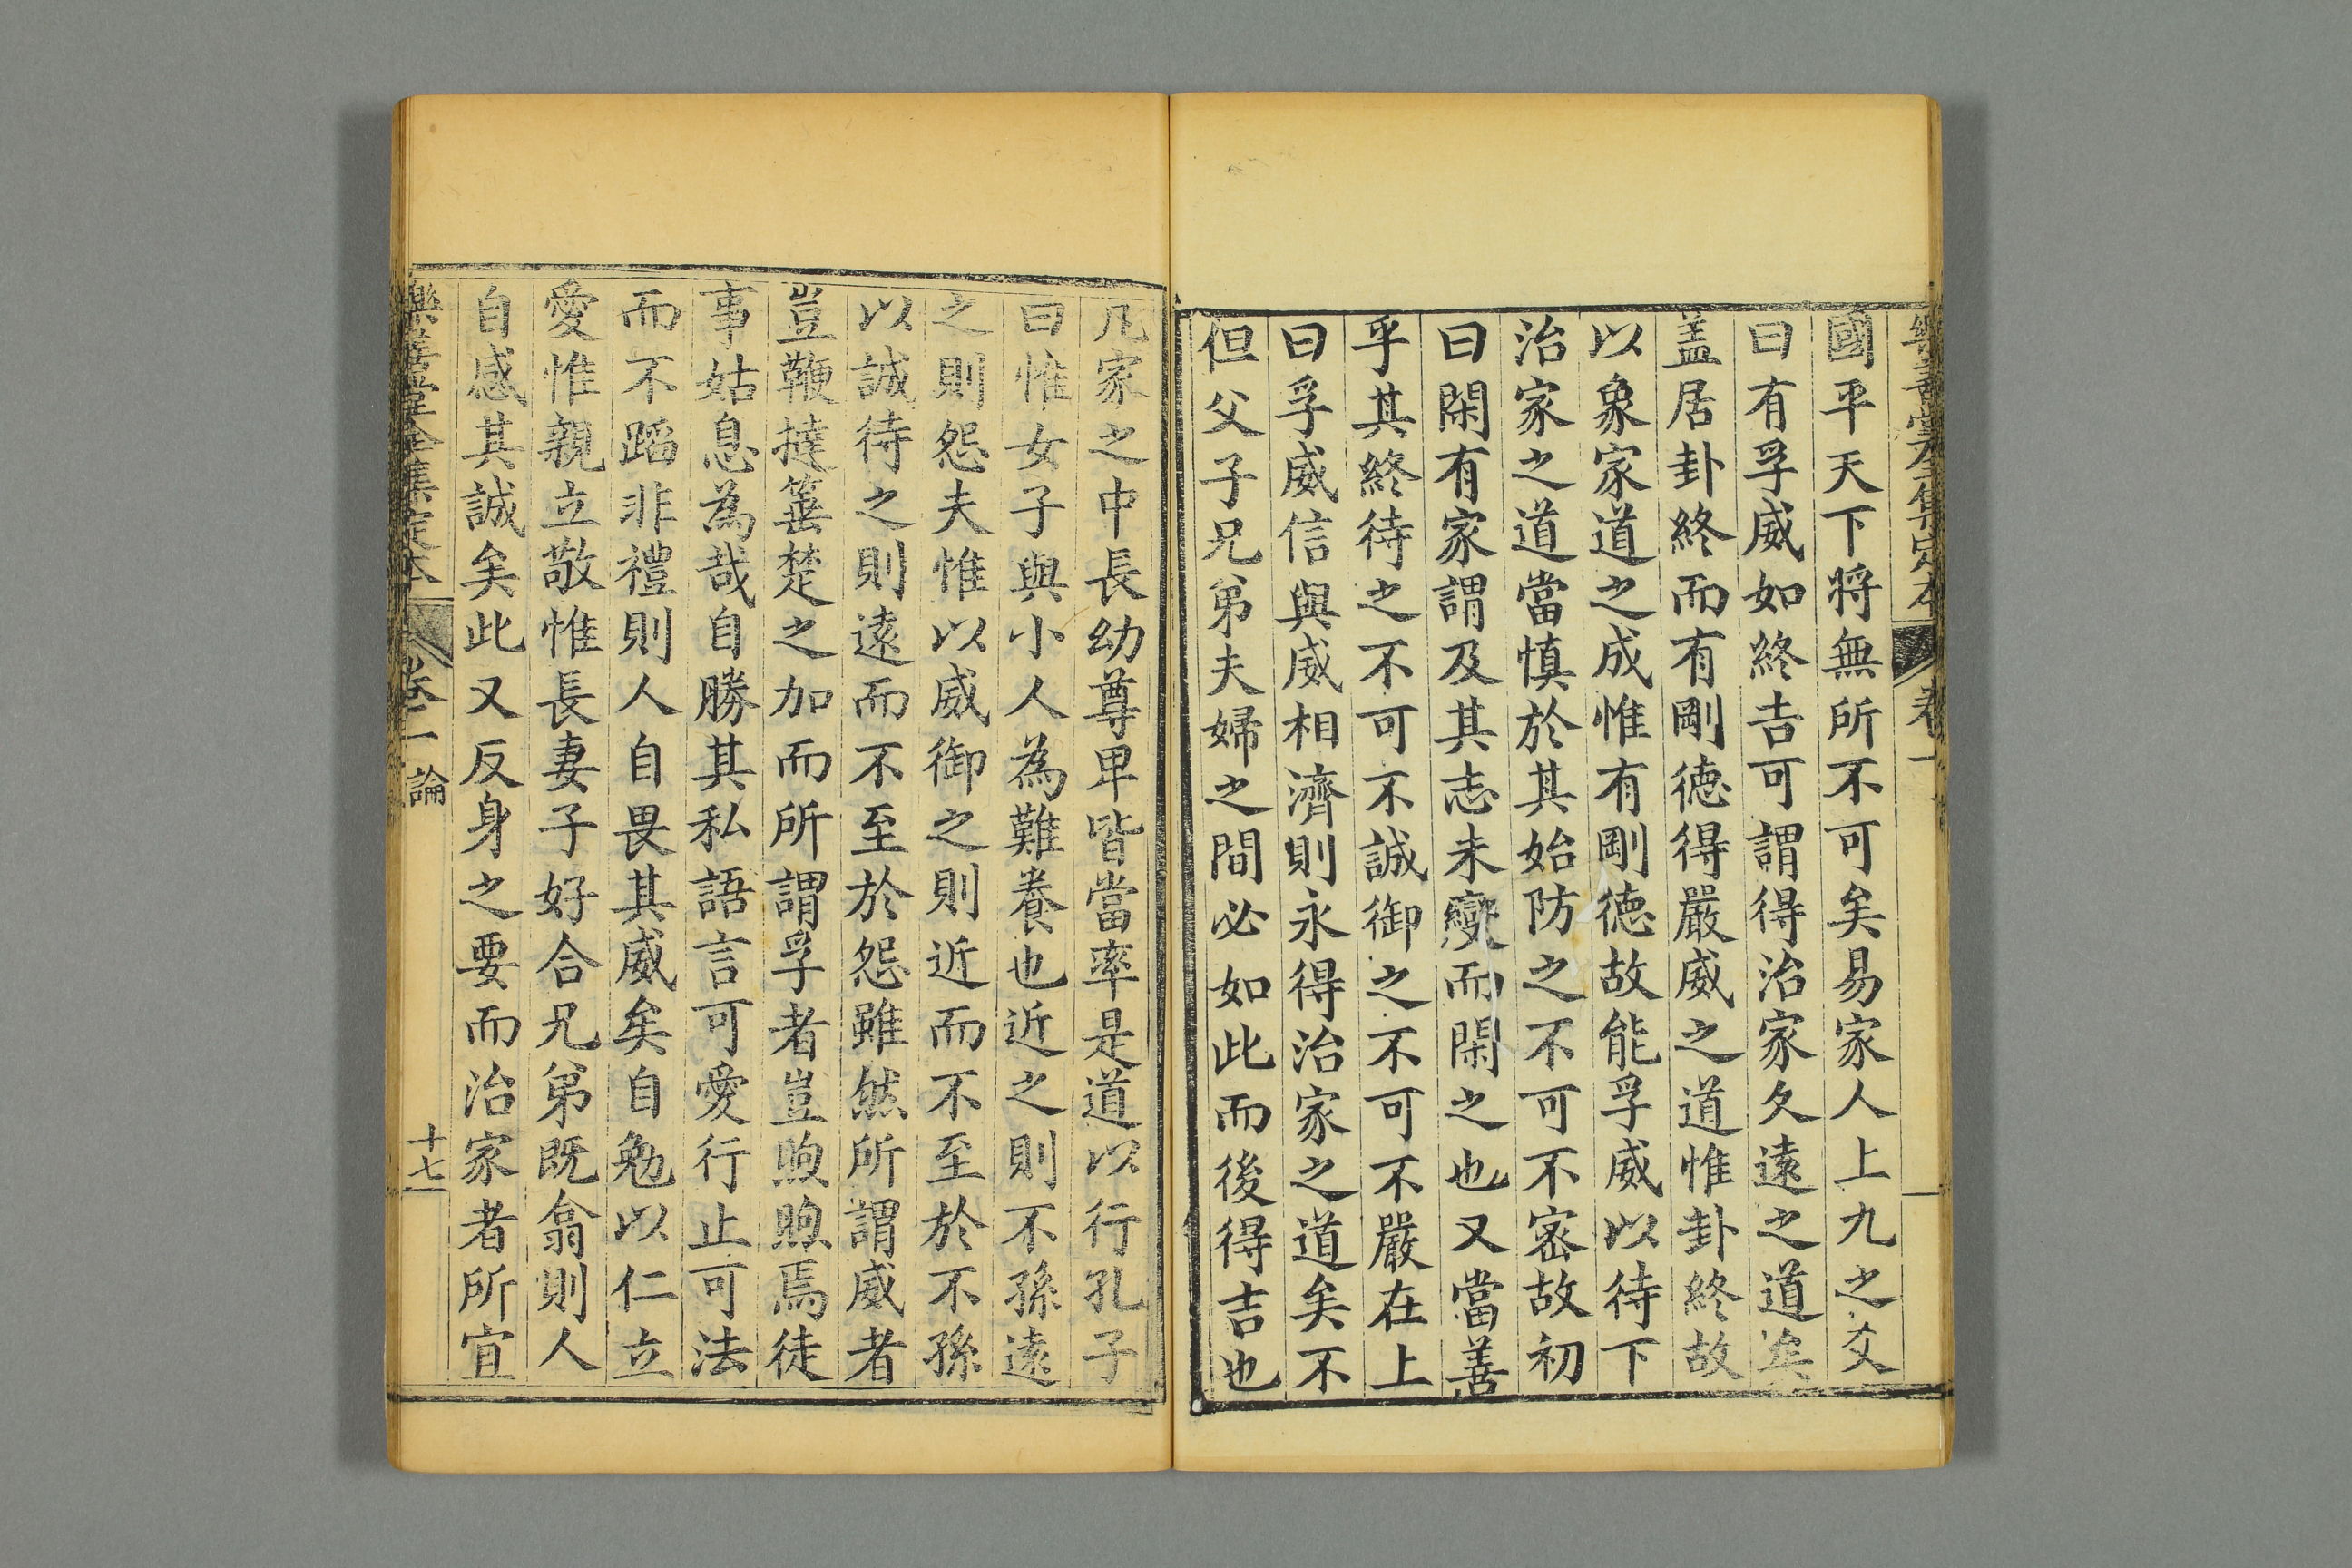 樂善堂全集定本
卷一
國平天下將無所不可矣易家人上九之爻
曰有孚威如終吉可謂得治家久遠之道矣
盖居卦終而有剛德得嚴威之道惟卦終故
以象家道之成惟有剛德故能孚威以待下
治家之道當慎於其始防之不可不密故初
曰閑有家謂及其志未變而閑之也又當善
乎其終待之不可不誠御之不可不嚴在上
曰孚威信與威相濟則永得治家之道矣不
但父子兄弟夫婦之間必如此而後得吉也
凡家之中長幼尊卑皆當率是道以行孔子
曰惟女子與小人為難養也近之則不孫遠
之則怨夫惟以威御之則近而不至於不孫
以誠待之則遠而不至於怨雖然所謂威者
豈鞭撻箠楚之加而所謂孚者豈煦煦焉徒
事姑息為哉自勝其私語言可愛行止可法
而不蹈非禮則人自畏其威矣自勉以仁立
愛惟親立敬惟長妻子好合兄弟既翕則人
自感其誠矣此又反身之要而治家者所宜
樂善堂全集定本
卷一 論
十七